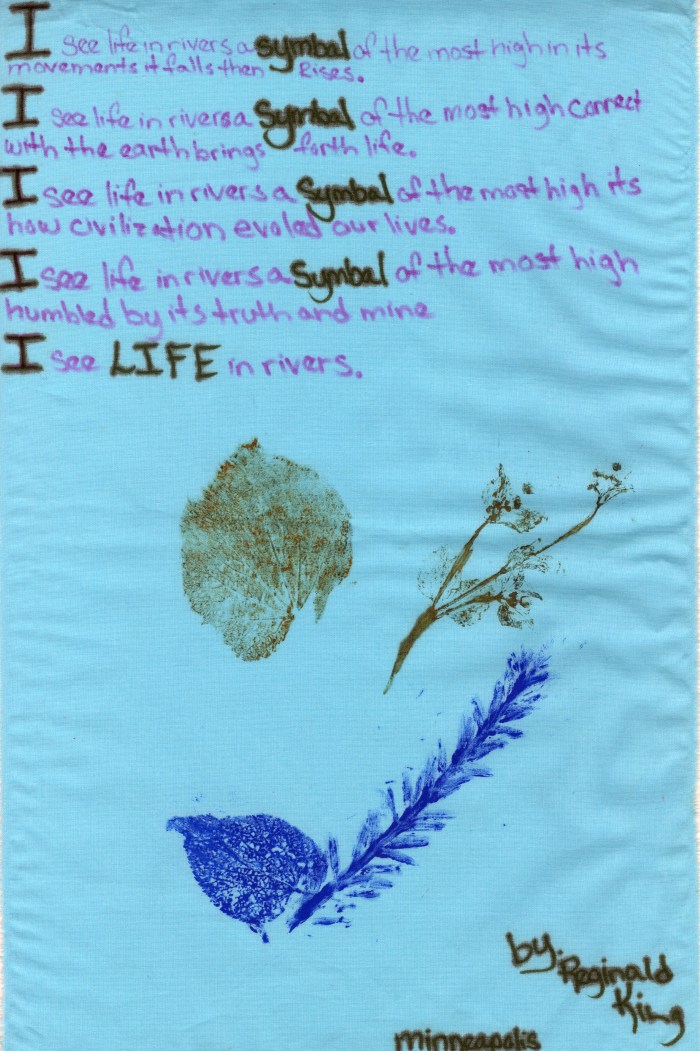 I see life in rivers a symbal of the most high in its
movements it falls then Rises.
I see life in rivers a Symbal of the most high correct
with the earth brings forth life.
I see life in rivers a Symbal of the most high its
how civilization evoled our lives.
I see life in rivers a Symbal of the most high
humbled by its truth and mine
I see LIFE in rivers.
by: Reginald
King
minneapolis